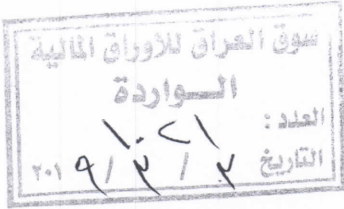 سوق العراق للأوراق المالية
الـــواردة
العدد : ١٠٢١
التاريخ ٣ / ٣ / ٢٠١٩